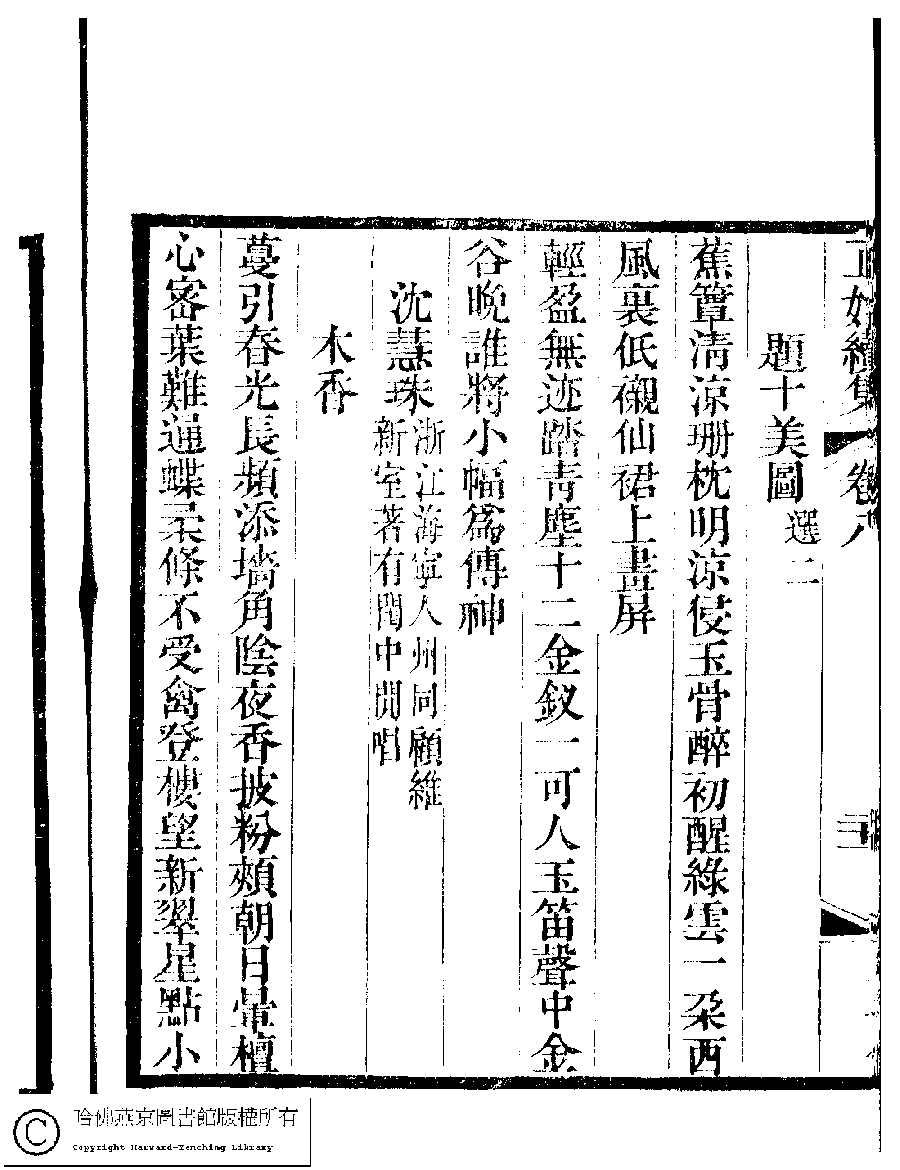 正始續集 卷八 三
題十美圖 選二
蕉簟清涼珊枕明涼侵玉骨醉初醒綠雲一朶西
風裏低襯仙裙上畫屏
輕盈無迹踏青塵十二金釵一可人玉笛聲中金
谷晚誰將小幅爲傳神
沈慧珠 浙江海寧人州同顧維
新室著有閨中閒唱
木香
蔓引春光長頻添墻角陰夜香披粉頰朝日暈檀
心密葉難通蝶柔條不受禽登樓望新翠星點小
哈佛燕京圖書館版權所有
Copyright Harvard-Yenching Library